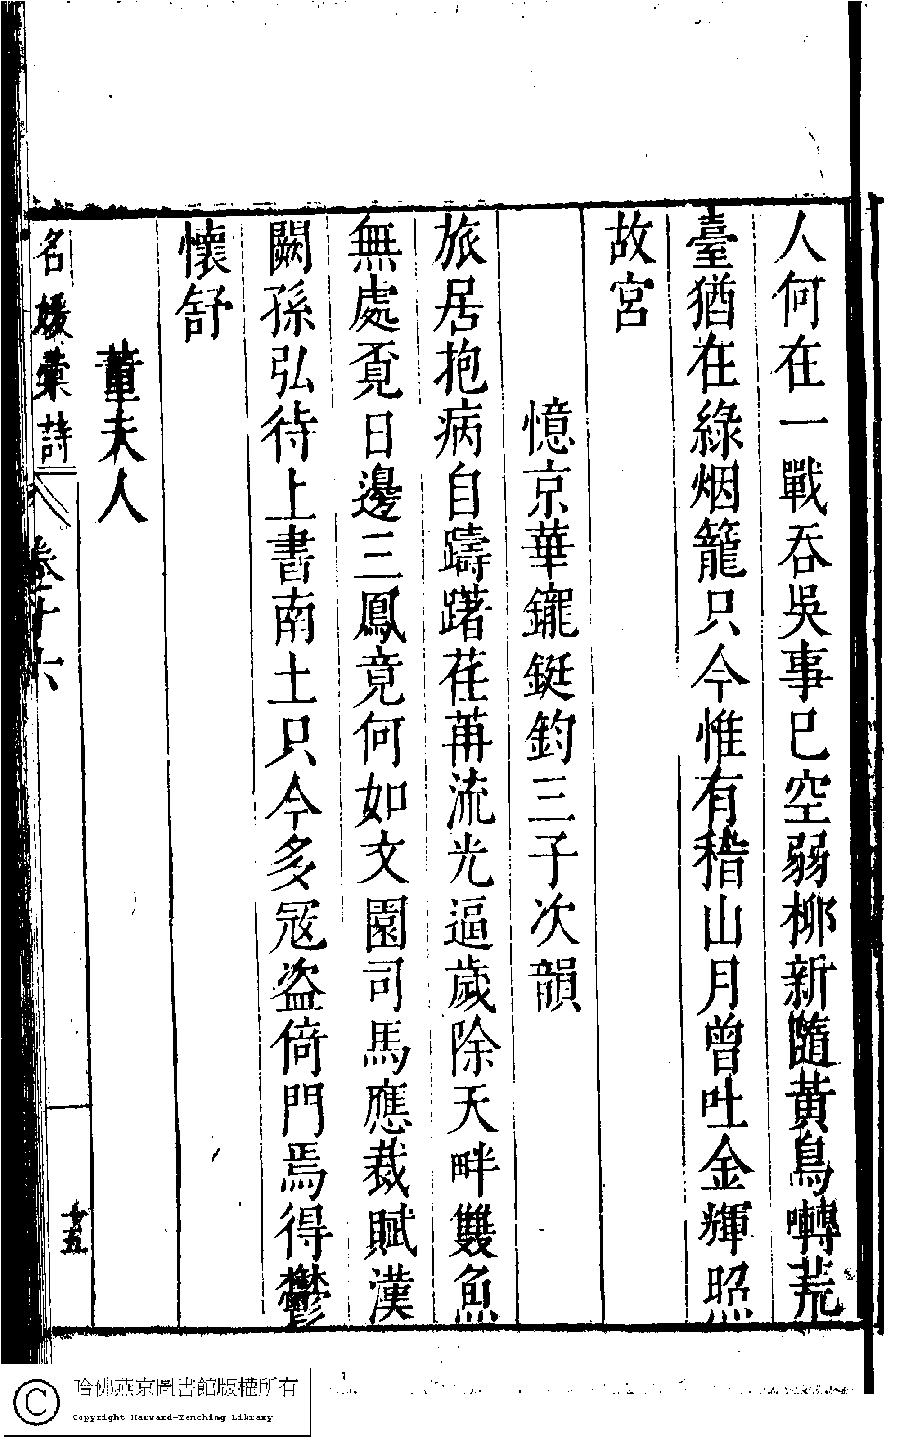 人何在一戰吞吳事已空弱栁新隨黃鳥囀荒
臺猶在綠烟籠只今惟有稽山月曾吐金輝照
故宮
憶京華鑨鋌鈞三子次韻
旅居抱病自躊躇荏苒流光逼歲除天畔雙魚
無處覔日邊三鳳竟何如文園司馬應裁賦漢
闕孫弘待上書南土只今多冦盗倚門焉得鬱
懷舒
董夫人
名媛彙詩
卷十六
十五
哈佛燕京圖書館版權所有
Copyright Harvard-Yenching Library